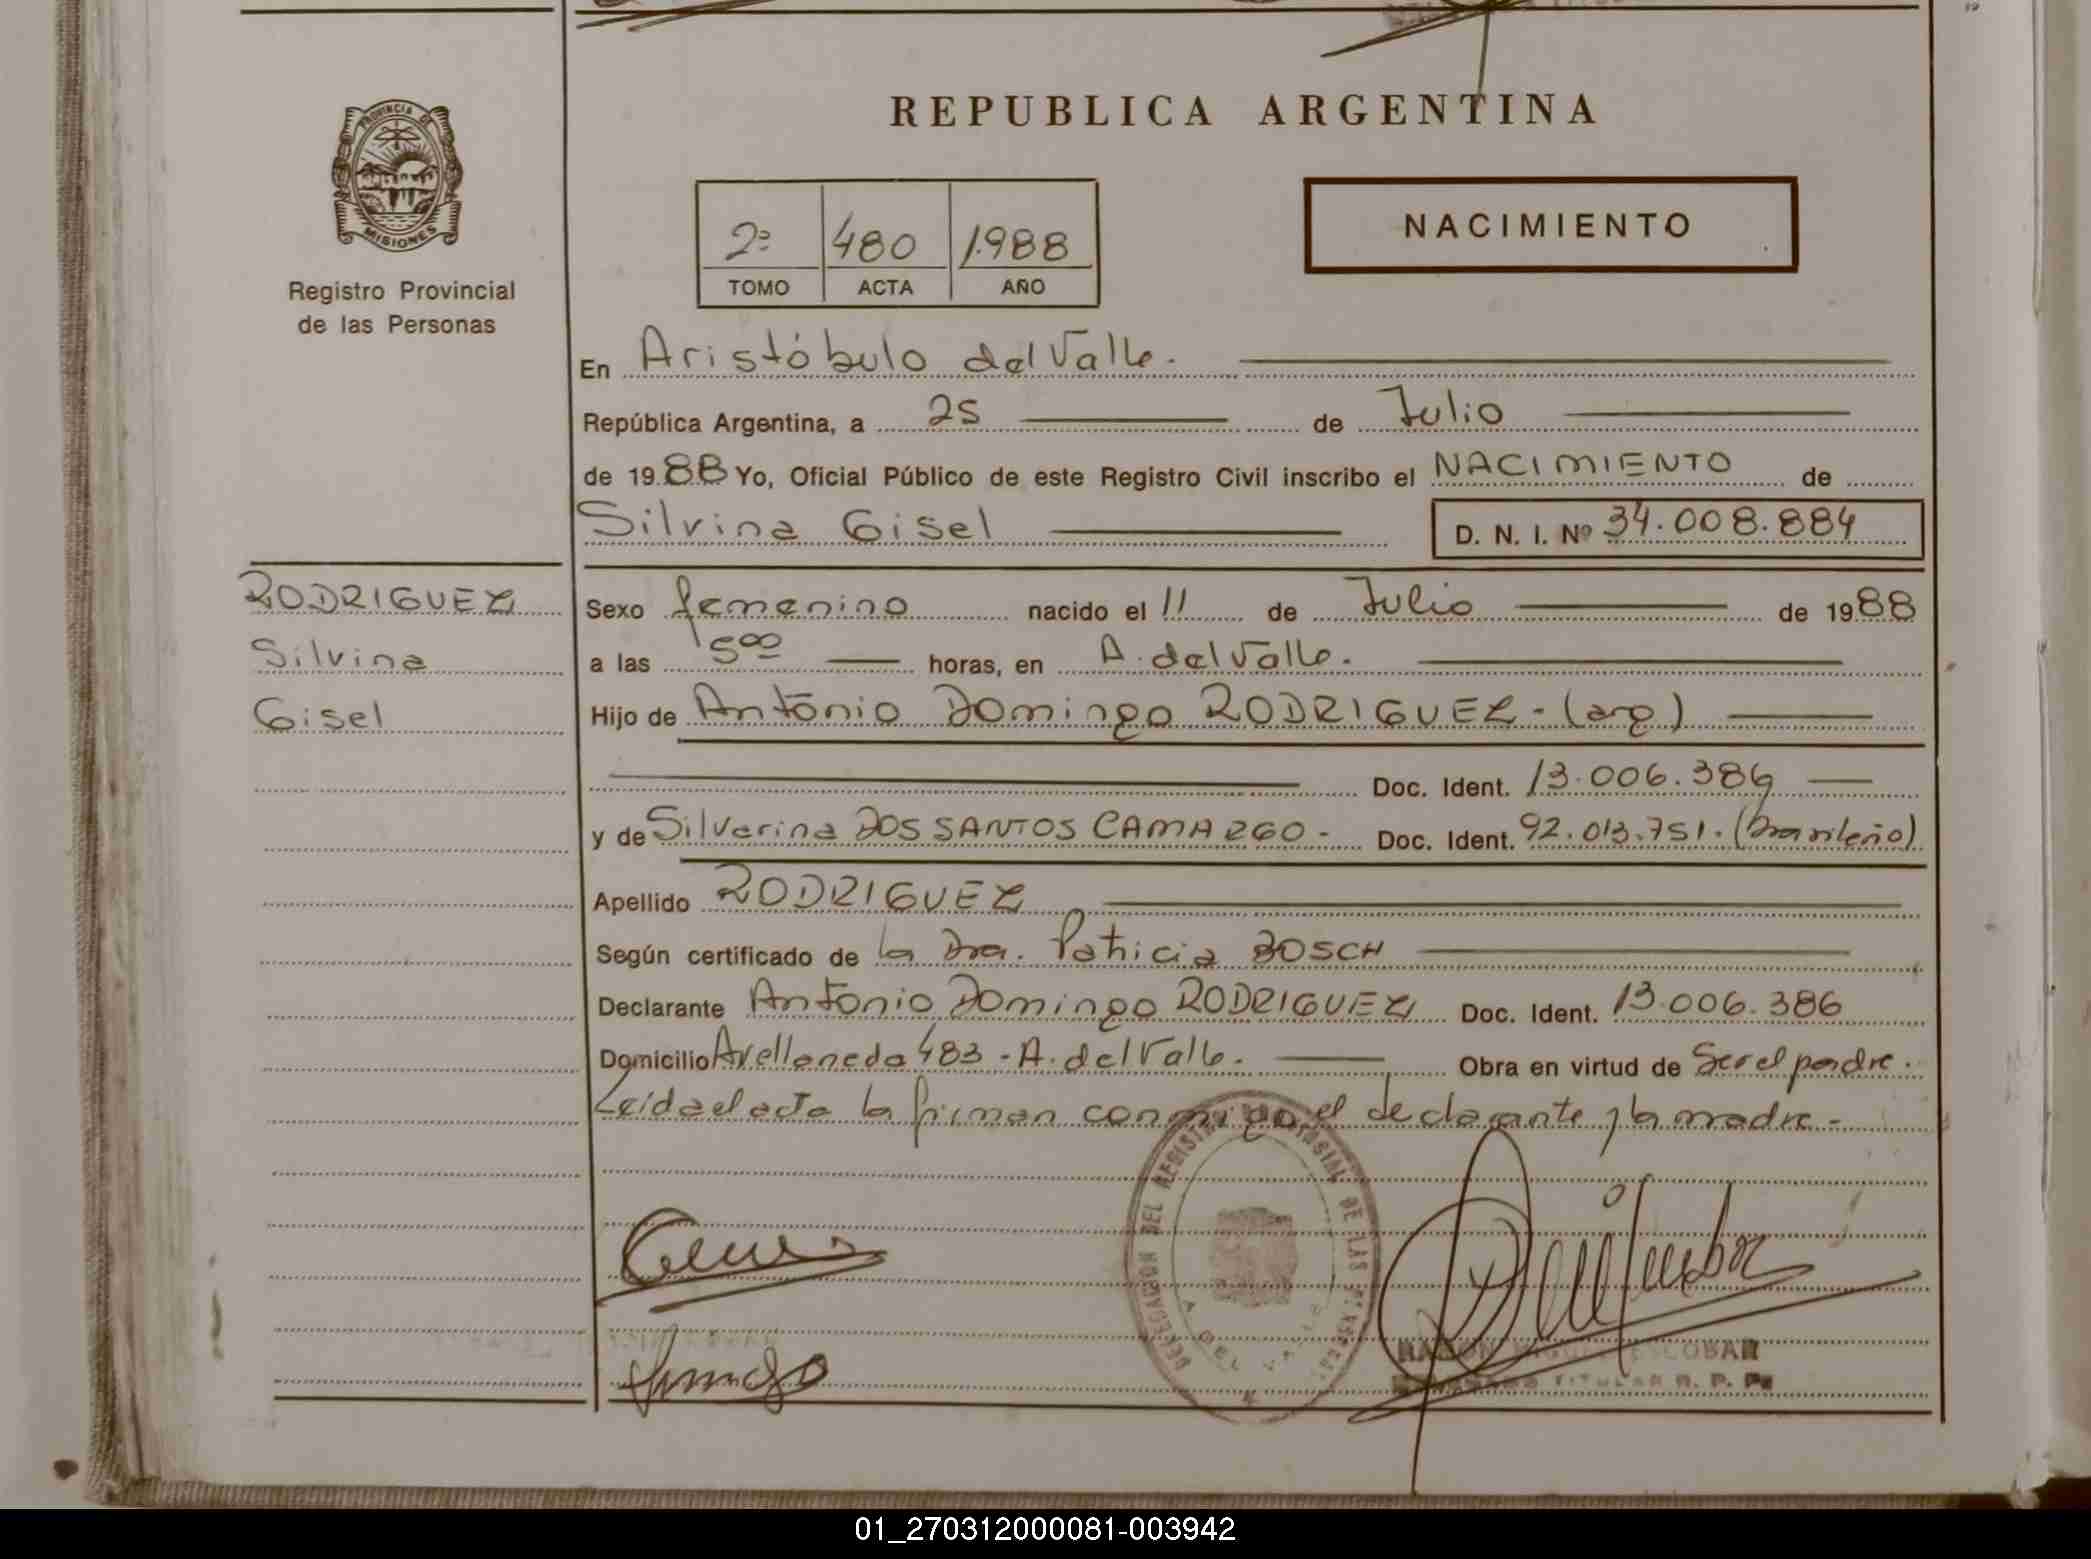 PROVINCIA DE
MISIONES
Registro Provincial
de las Personas
REPUBLICA ARGENTINA
2º 480 1.988
TOMO ACTA AÑO
NACIMIENTO
En Aristóbulo del Valle.
República Argentina, a 25 de Julio
de 1988 Yo, Oficial Público de este Registro Civil inscribo el NACIMIENTO de
Silvina Gisel D. N. I. Nº 34.008.884
RODRIGUEZ
Silvina
Gisel
Sexo femenino nacido el 11 de Julio de 1988
a las 5 00 horas, en A. del Valle.
Hijo de Antonio Domingo RODRIGUEZ - (arg)
Doc. Ident. 13.006.386
y de Silverina DOS SANTOS CAMARGO - Doc. Ident. 92.013.751. (brasileño)
Apellido RODRIGUEZ
Según certificado de la Dra. Patricia BOSCH
Declarante Antonio Domingo RODRIGUEZ Doc. Ident. 13.006.386
Domicilio Avellaneda 483 - A. del Valle. Obra en virtud de Ser el padre.
Leida el acta la firman conmigo el declarante y la madre.-
DELEGACION DEL REGISTRO PROVINCIAL DE LAS PERSONAS
A. DEL VALLE
RAMON MIGUEL ESCOBAR
TITULAR R. P. P.
01_270312000081-003942